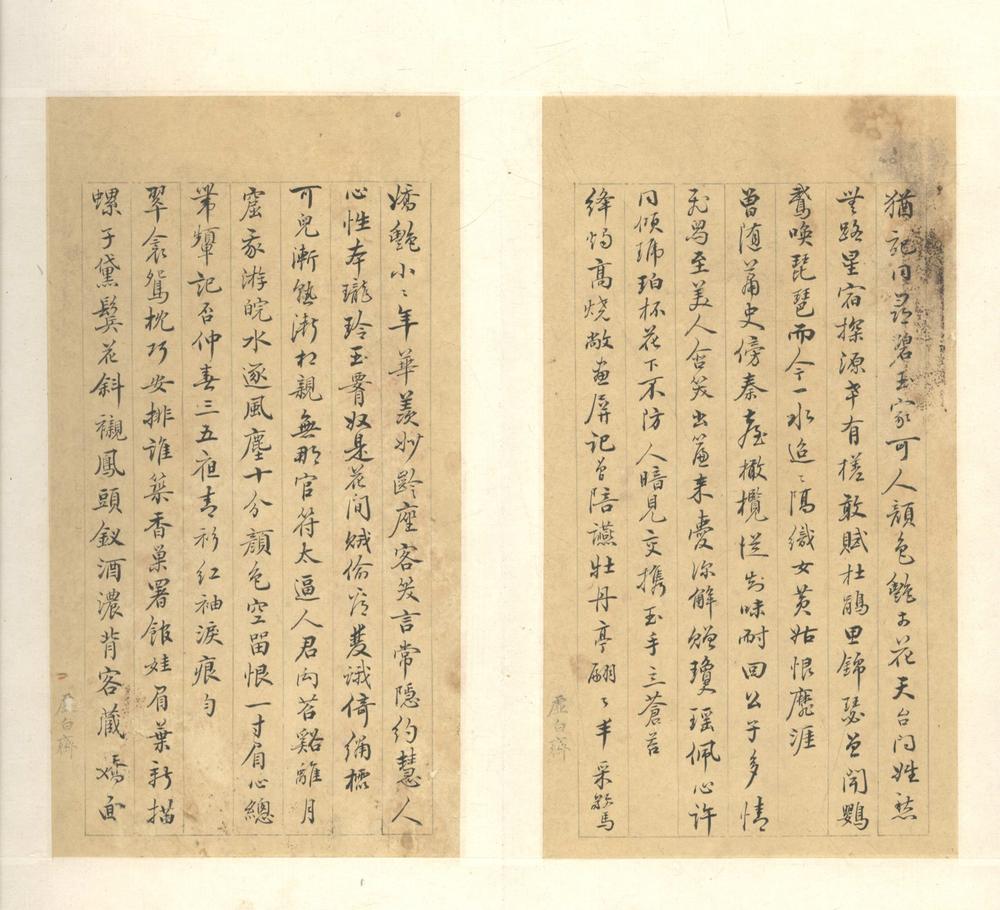 猶記同尋碧玉家可人顏色艷於花天台门姓愁
無路星宿探源幸有槎敢賦杜鵑思錦瑟曾聞鸚
鵡喚琵琶而今一水迢〻隔織女黃姑恨靡涯
曾随蕭史傍秦臺橄欖從知味耐回公子多情
花写至美人含笑出簾来憂深解贈瓊瑶佩心许
同傾琥珀杯花下不防人暗見交攜玉手立蒼苔
絳燭高烧敞畫屏记曾陪讌牡丹亭翩〻半采驚
嬌艷小〻年華羡妙齡座客笑言常隐約慧人
心性本瓏玲玉簫奴是花间
可兒漸熟漸相親無那官符太逼人君向苕谿離月
窟我游皖水逐風塵十分顏色空留恨一寸眉心總
带顰記否仲春三五夜青衫红袖淚痕匀
翠衾鴛枕巧安排誰築香巢署館娃眉葉新描
螺子黛鬓花斜襯鳳頭釵酒濃背客藏嬌面
虚白齋
虚白齋